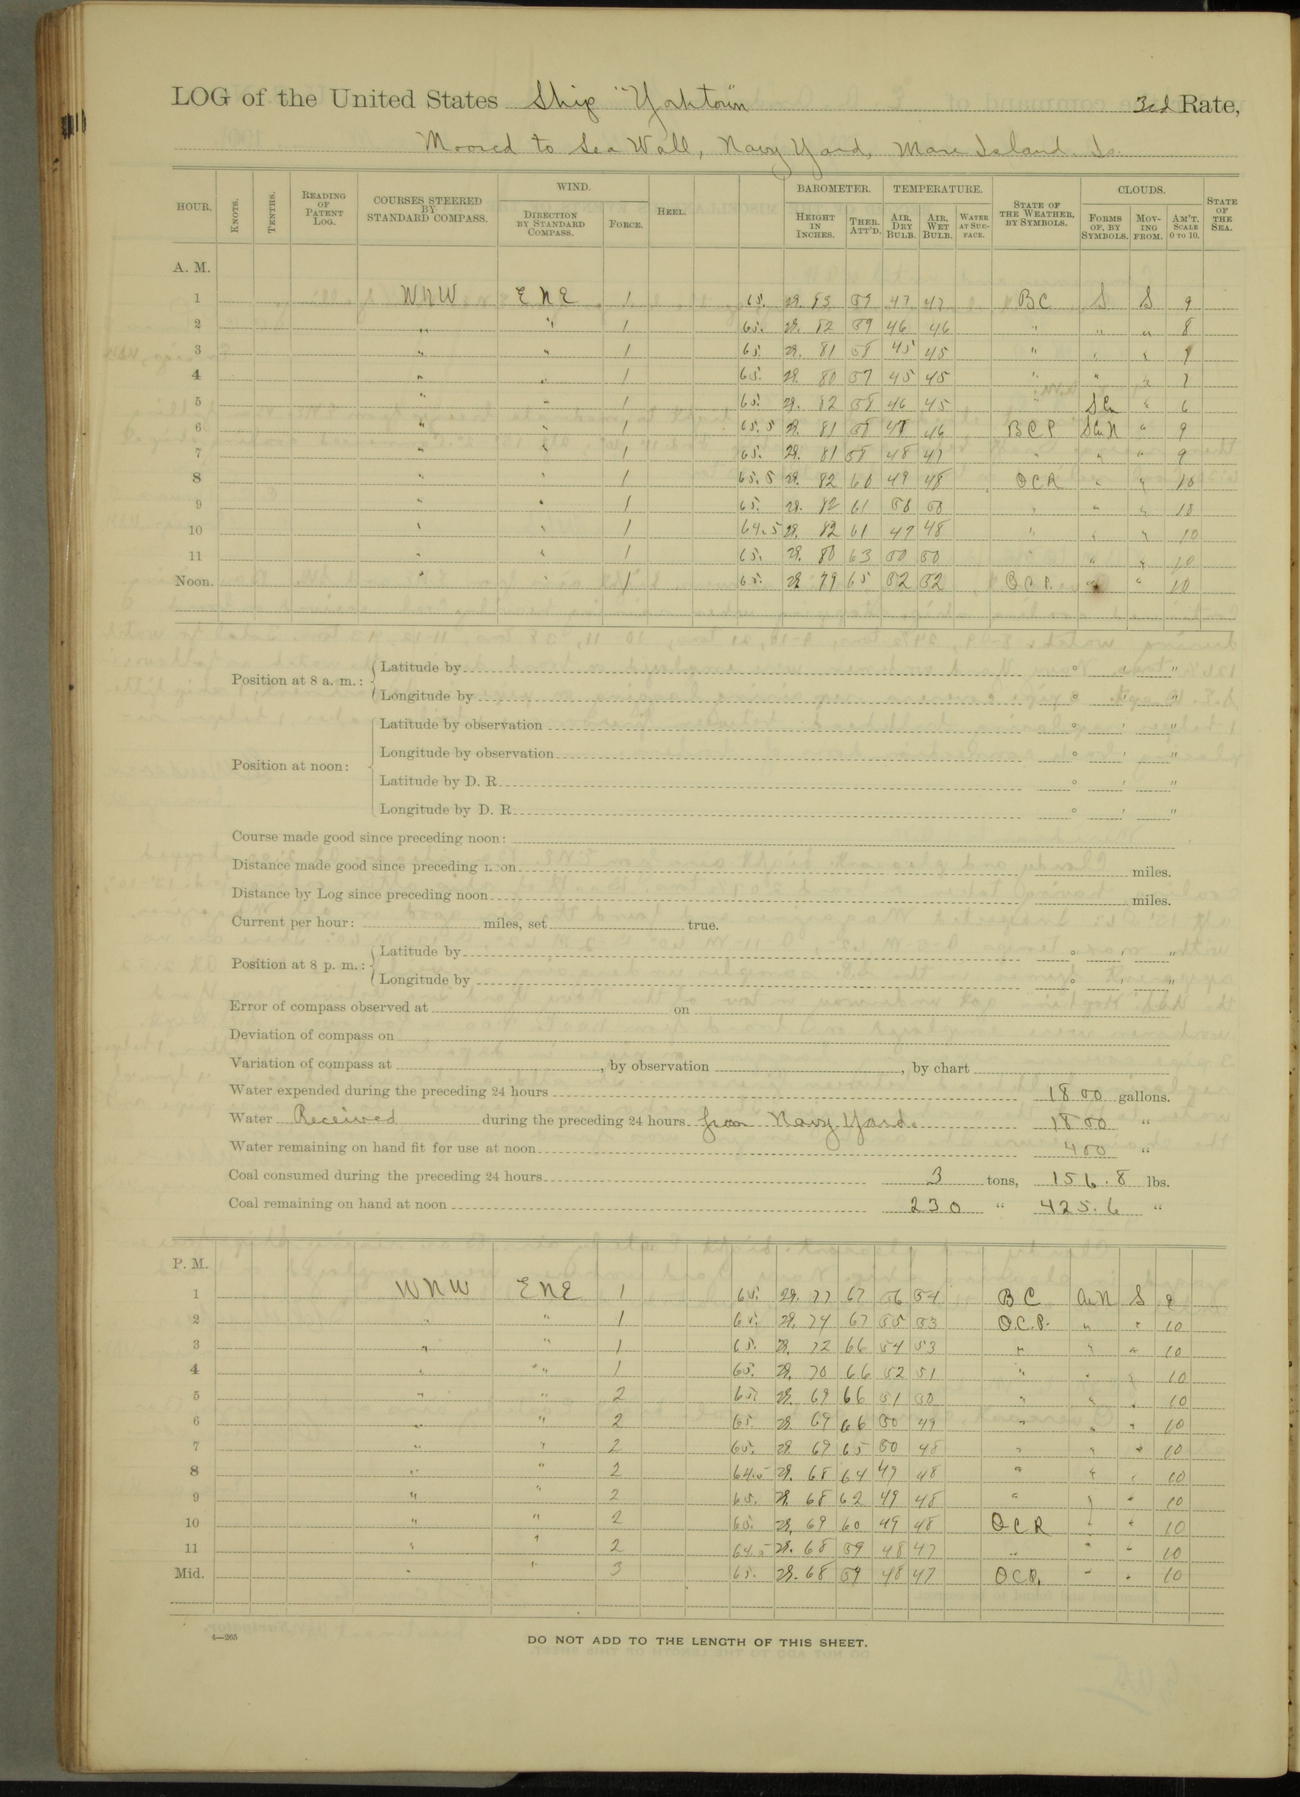 LOG of the United States Ship "Yorktown" 3rd Rate,
Moored to Sea Wall, Navy Yard, Mare Island
HOUR. KNOTS. TENTHS. READING OF PATENT LOG. COURSES STEERED BY STANDARD COMPASS. WIND. DIRECTION BY STANDARD COMPASS. FORCE. HEEL. BAROMETER. HEIGHT IN INCHES. THER. ATT'D. TEMPERATURE. AIR, DRY BULB. AIR, WET BULB. WATER AT SURFACE. STATE OF THE WEATHER, BY SYMBOLS. CLOUDS. FORMS OF, BY SYMBOLS. MOVING FROM. AM'T. SCALE 0 TO 10. STATE OF THE SEA.
A. M.
1 WNW ENE 1 65. 29. 83 59 47 47 BC S S 9
2 " " 1 65. 29. 82 59 46 46 " " " 8
3 " " 1 65. 29. 81 58 45 45 " " "
4 " " 1 65. 29. 80 57 45 45 " " " 7
5 " " 1 65. 29. 82 58 46 45 " S Cu " 6
6 " " 1 65.5 29. 81 58 47 46 BCP SCuN " 9
7 " " 1 65. 29. 81 58 48 47 " " " 9
8 " " 1 65.5 29. 82 60 49 48 OCR " " 10
9 " " 1 65. 29. 82 61 50 50 " " " 10
10 " " 1 64.5 29. 82 61 49 48 " " " 10
11 " " 1 65. 29. 80 63 50 50 " " " 10
Noon. " " 1 65. 29 79 65 52 52 OCP. " " 10
Position at 8 a. m.: Latitude by ° ' "
Longitude by ° ' "
Position at noon: Latitude by observation ° ' "
Longitude by observation ° ' "
Latitude by D. R. ° ' "
Longitude by D. R. ° ' "
Course made good since preceding noon:
Distance made good since preceding noon miles.
Distance by Log since preceding noon miles.
Current per hour: miles, set true.
Position at 8 p. m.: Latitude by ° ' "
Longitude by ° ' "
Error of compass observed at on
Deviation of compass on
Variation of compass at , by observation , by chart
Water expended during the preceding 24 hours 1800 gallons.
Water Received during the preceding 24 hours from Navy Yard. 1800 "
Water remaining on hand fit for use at noon 400 "
Coal consumed during the preceding 24 hours 3 tons, 156.8 lbs.
Coal remaining on hand at noon 230 " 425.6 "
P. M.
1 WNW ENE 1 65. 29. 77 67 56 54 BC CuN S 9
2 " " 1 65. 29. 74 67 55 53 O.C.P. " " 10
3 " " 1 65. 29. 72 66 54 53 " " " 10
4 " " 1 65. 29. 70 66 52 51 " " " 10
5 " " 2 65. 29. 69 66 51 50 " " " 10
6 " " 2 65. 29. 69 66 50 49 " " " 10
7 " " 2 65. 29. 69 65 50 48 " " " 10
8 " " 2 64.5 29. 68 64 49 48 " " " 10
9 " " 2 65. 29. 68 62 49 48 " " " 10
10 " " 2 65. 29. 69 60 49 48 OCR " " 10
11 " " 2 64.5 29. 68 59 48 47 " " " 10
Mid. " " 3 65. 29. 68 59 48 47 OCP. " " 10
4—265
DO NOT ADD TO THE LENGTH OF THIS SHEET.